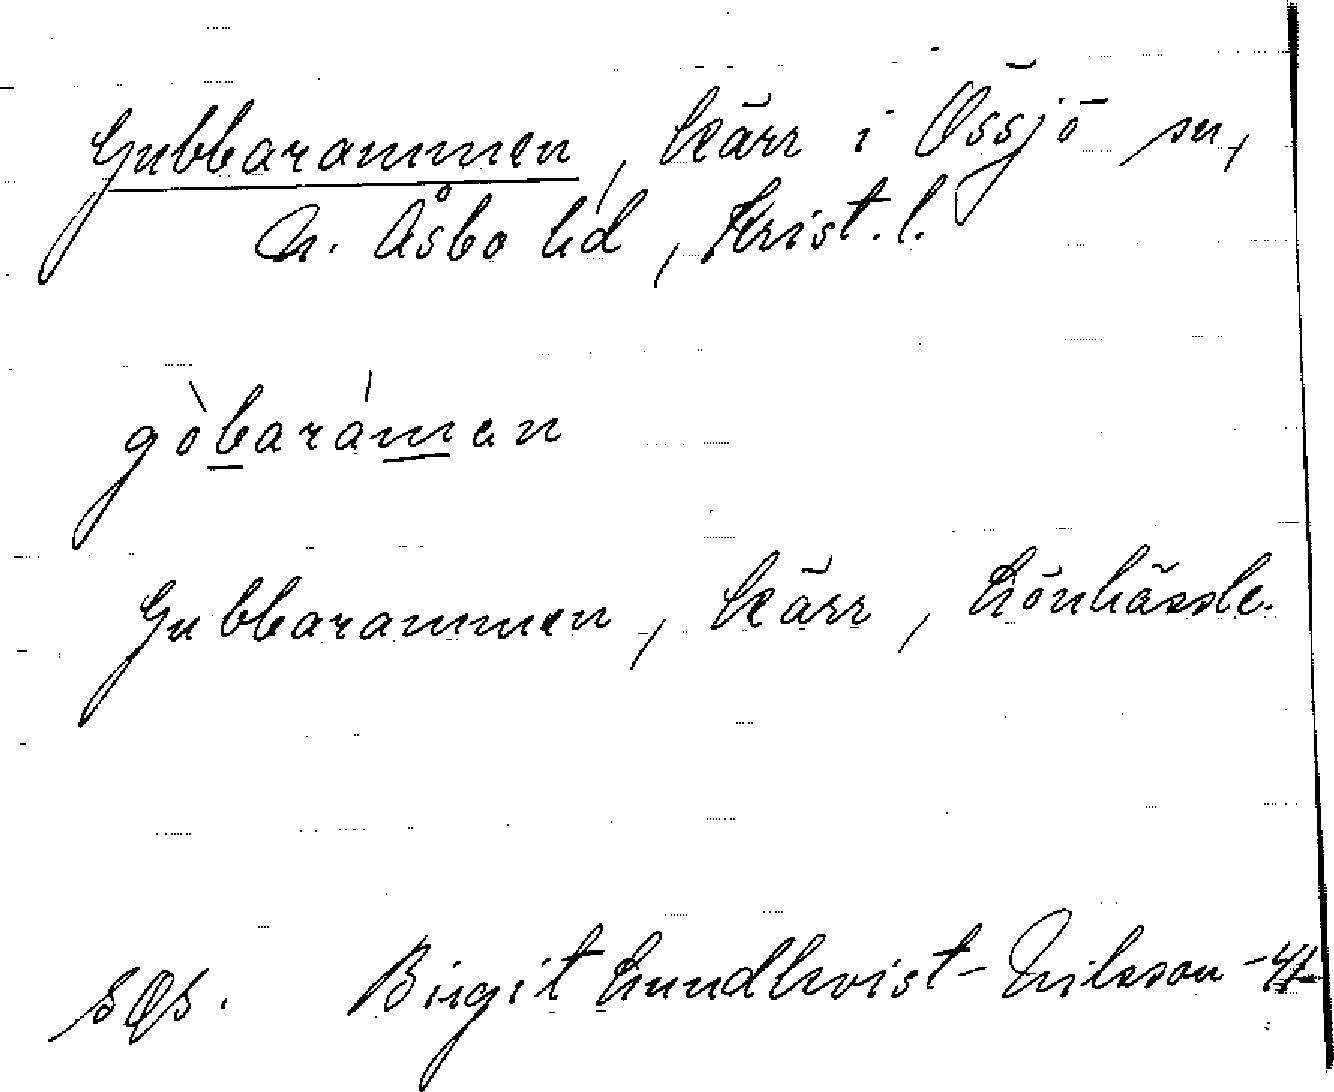 Gubbarammen, kärr i Össjö sn,
N. Åsbo hd, Krist. l.
gòbarámen
Gubbarammen, kärr, Lönhässle.
Birgit Lundkvist-Nilsson